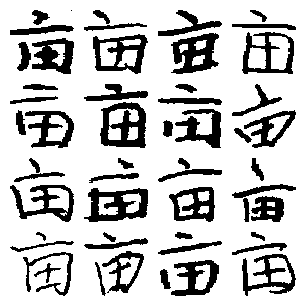 亩亩亩亩
亩亩亩亩
亩亩亩亩
亩亩亩亩